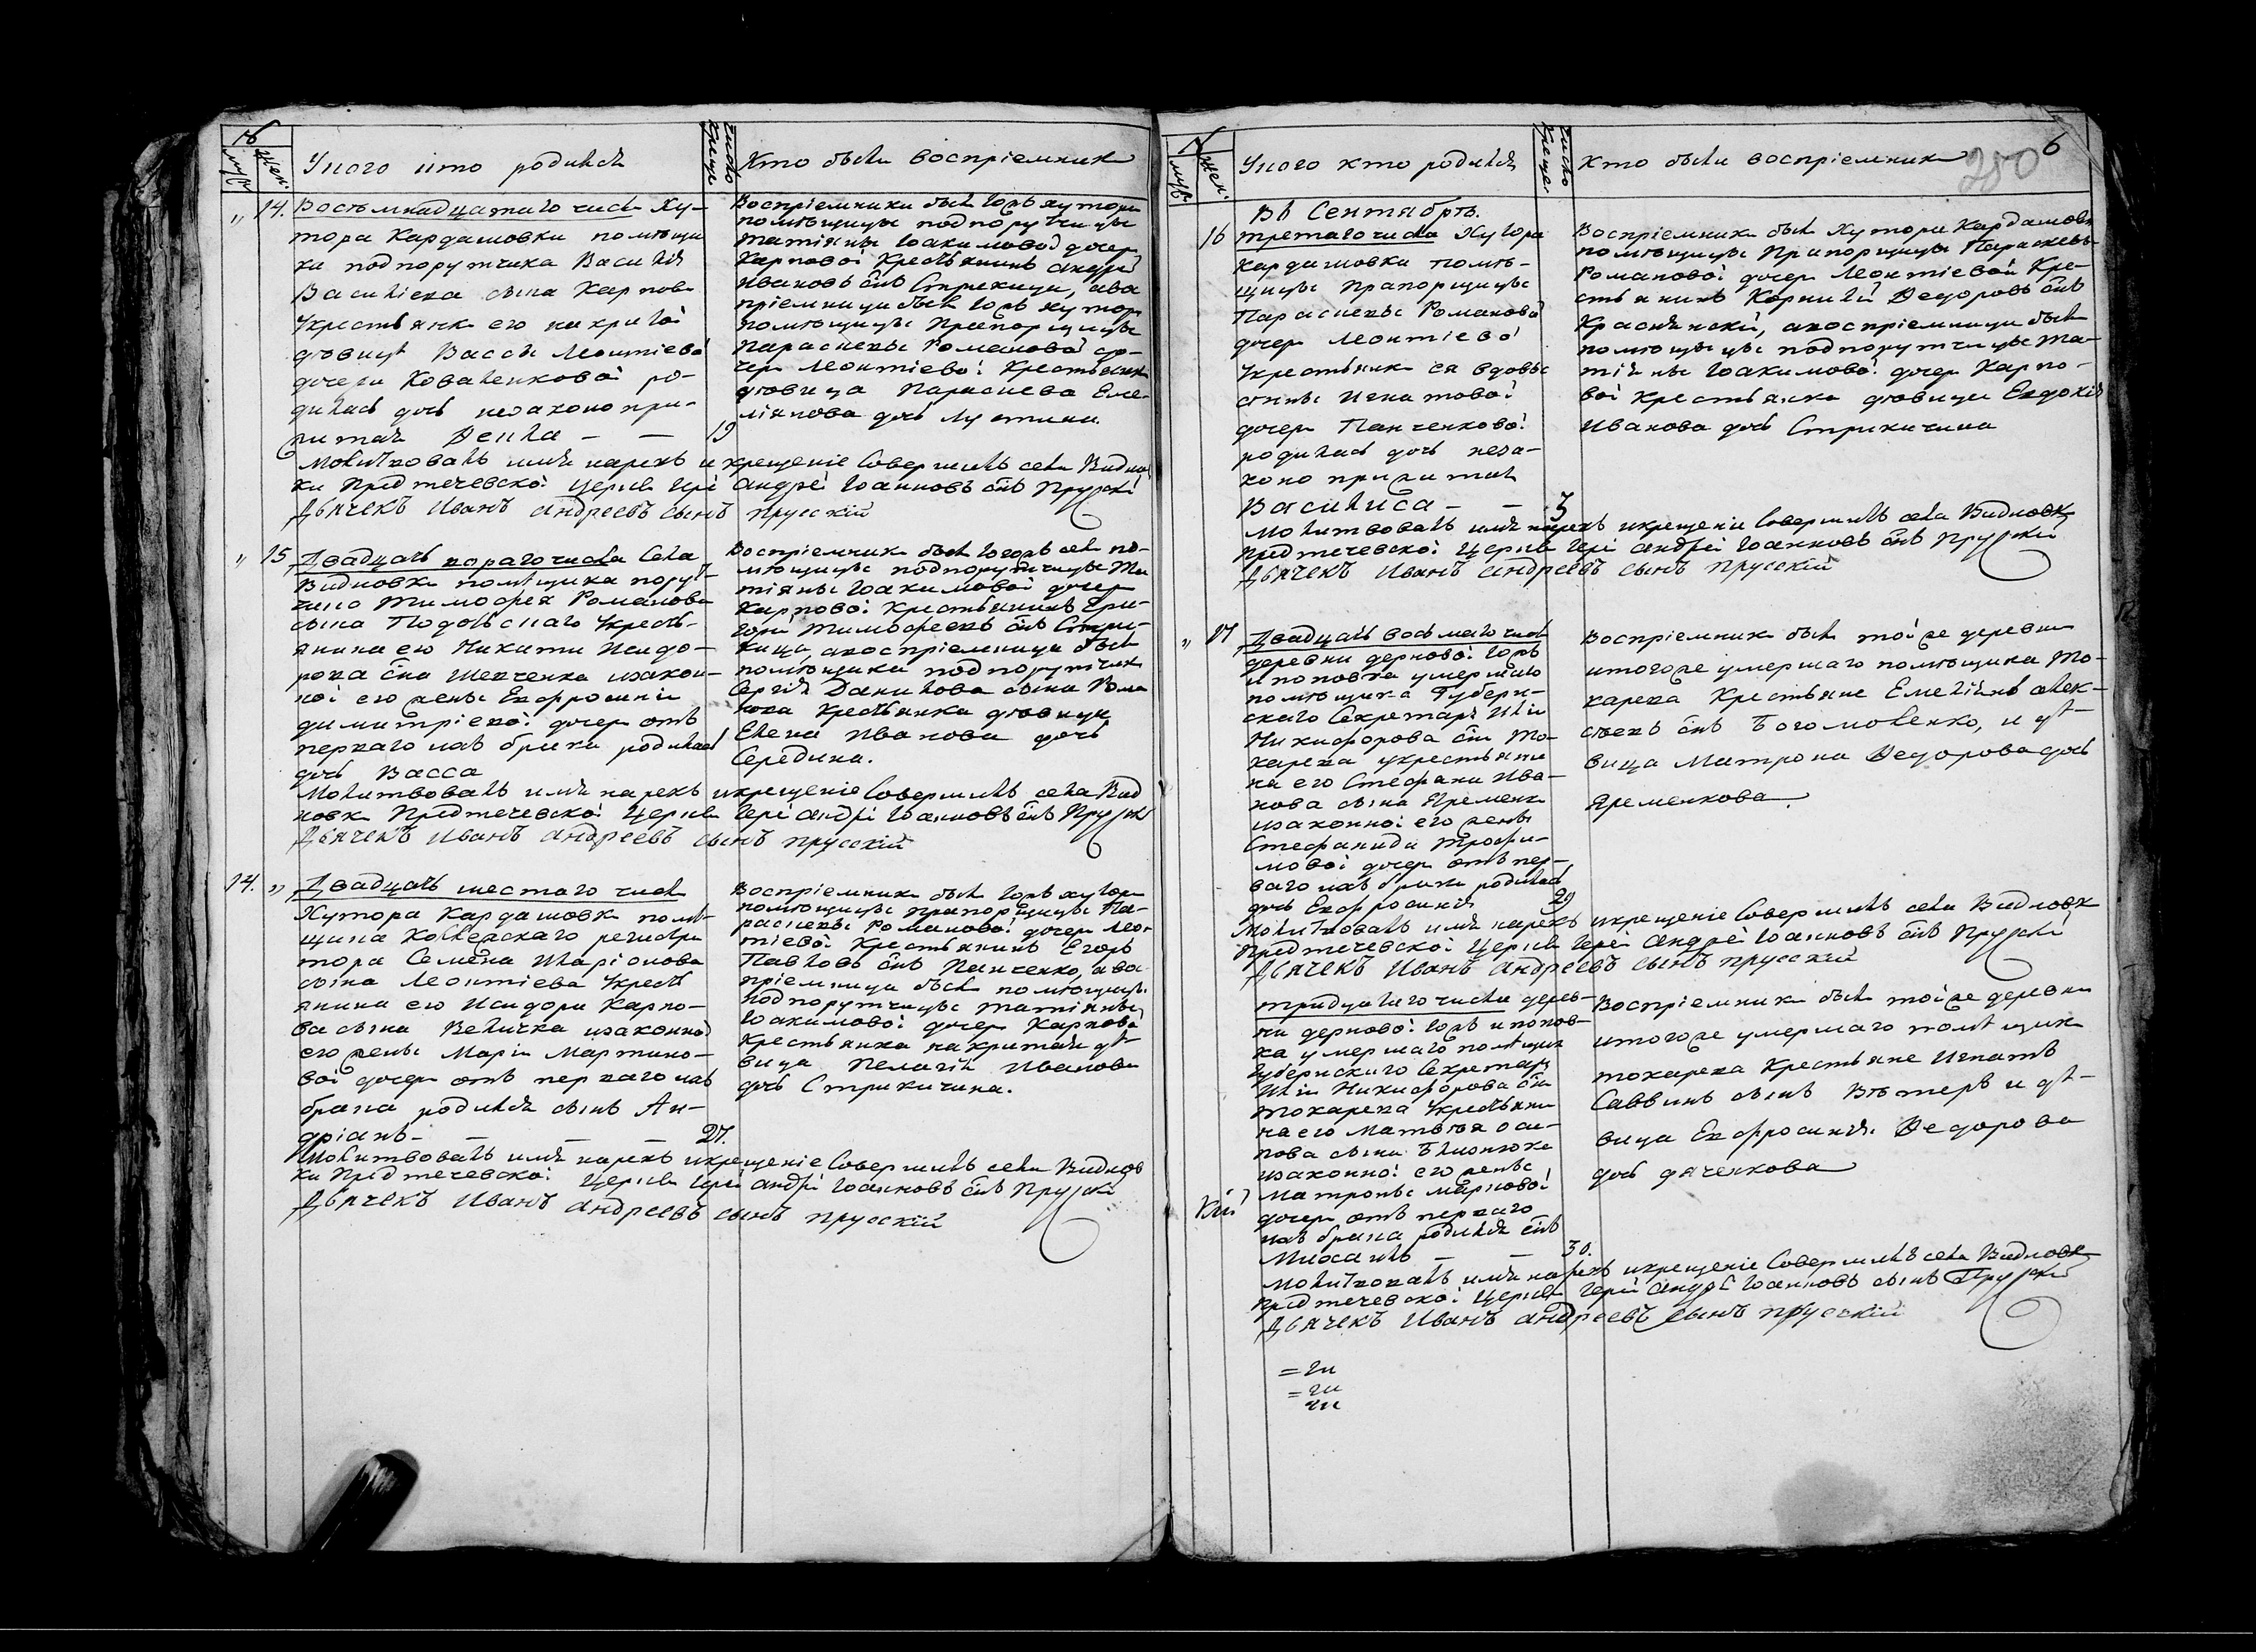 №
муж
жен.
У кого кто родился
число крещен.
Кто были восприемники
„ 14. Восемнадцатаго числа Ху-
тора Кардашовки помѣщи
ка подпорутчика Василія
Василіева сына Карпова
у крестьянки его накритой
дѣвицы Вассы Леонтіевой
дочери Коваленковой ро-
дилась дочь незаконопри-
житая Ѳекла — — 19
Воспріемники были того хутора
помѣщицы подпорутчицы
Татіяны Іоакимовой дочери
Карповой крестьянинъ Андрей
Ивановъ снъ Стрекица, а вос
пріемница была того хутора
помѣщицы Прапорщицы
Параскевы Романовой до-
чери Леонтіевой крестьянка
дѣвица Параскева Еме-
ліянова дочь
Молитвовалъ имя нарекъ и крещеніе совершилъ села Виднов
ки Предтечевской церкви Іерей Андрей Іоанновъ снъ Прускій
Дьячекъ Иванъ Андреевъ сынъ Прусскій
„ 15 Двадцать втораго числа Села
Видновки помѣщика поруч-
чика Тимофея Романова
сына Подольскаго у крестья-
янина его Никиты Исидо-
рова сна Шевченка законн-
ной его жены Евфросиніи
Димитріевой дочери отъ
перваго ихъ брака родилась
дочь Васса
Воспріемники были того жъ села по-
мѣщицы подпорутчицы Та
тіяны Іоакимовой дочери
Карповой крестьянинъ Гри-
горій Тимофеевъ снъ Стри-
кица, а воспріемница была
помѣщика подпорутчика
Сергія Данилова сына Рома
нова крестьянка дѣвица
Елена Иванова дочь
Середина.
Молитвовалъ имя нарекъ и крещеніе совершилъ села Вид
новки Предтечевской церкви Іерей Андрей Іоанновъ снъ Прускій
Дьячекъ Иванъ Андреевъ сынъ Прусскій
14. „ Двадцать шестаго числа
Хутора Кардашовки помѣ-
щика Коллежскаго регистра
тора Семена Иларіонова
сына Леонтіева у крестья
янина его Исидора Карпо-
ва сына Величка законной
его жены Маріи Мартино-
вой дочери отъ перваго ихъ
брака родился сынъ Ан-
дріанъ — — — 27.
Воспріемники были того хутора
помѣщицы прапорщицы Па-
раскевы Романовой дочери Леон-
тіевой крестьянинъ Егоръ
Павловъ снъ Панченко, а во-
пріемница была помѣщицы
подпорутчицы Татіяны
Іоакимовой дочери Карповой
крестьянка накритая дѣ-
вица Пелагія Иванова
дочь Стрикичина.
Молитвовалъ имя нарекъ и крещеніе совершилъ села Виднов
ки Предтечевской церкви Іерей Андрей Іоанновъ снъ Прускій
Дьячекъ Иванъ Андреевъ сынъ Прусскій
№
муж
жен.
У кого кто родился
число крещен.
Кто были воспріемники
250
6
Въ Сентябрѣ.
16 третаго числа Хутора
Кардашовки помѣ-
щицы Прапорщицы
Параскевы Романовой
дочери Леонтіевой
у крестьянки ея вдовы
Игнатовой
дочери Панченковой
родилась дочь неза-
коно прижитая
Василиса — — 3
Воспріемники были Хутора Кардашовки
помѣщицы Прапорщицы Параскевы
Романовой дочери Леонтіевой Кре-
стьянинъ Корнилій Ѳедоровъ снъ
Краснянскій, а воспріемница была
помѣщицы подпорутчицы Та-
тіяны Іоакимовой дочери Карпо-
вой крестьянка дѣвица Евдокія
Иванова дочь Стрикичина
Молитвовалъ имя нарекъ и крещеніе совершилъ села Видновки
Предтечевской церкви Іерей Андрей Іоанновъ снъ Прускій
Дьячекъ Иванъ Андреевъ сынъ Прусскій
„ 17 Двадцать восмаго числа
деревни Дерновой тожъ
и Поповка умершаго
помѣщика Губерн-
скаго Секретаря Иліи
Никифорова сна То-
карева у крестьяни
на его Стефана Ива-
нова сына Яременка
законной его жены
Стефаниды Трофи-
мовой дочери отъ пер-
ваго ихъ брака родилась
дочь Евфросинія 29
Воспріемники были той же деревни
и того же умершаго помѣщика То-
карева Крестьяне Емеліянъ Алек-
сѣевъ снъ Богомоленко, и дѣ-
вица Матрона Ѳедорова дочь
Яременкова.
Молитвовалъ имя нарекъ и крещеніе совершилъ села Видновки
Предтечевской церкви Іерей Андрей Іоанновъ снъ Прускій
Дьячекъ Иванъ Андреевъ сынъ Прусскій
тридцатаго числа дерев-
ни Дерновой тожъ и Попов-
ка умершаго помѣщика
Губернскаго Секретаря
Иліи Никифорова сна
Токарева у крестьяни
на его Матвѣя Оси-
пова сына
законной его жены
Матроны Марковой
дочери отъ перваго
ихъ брака родился снъ
Михаилъ — — 30.
Воспріемники были той же деревни
и того же умершаго помѣщика
Токарева Крестьяне Игнатъ
Саввинъ сынъ Вѣтеръ и дѣ-
вица Евфросинія Ѳедорова
дочь Дяченкова
Молитвовалъ имя нарекъ и крещеніе совершилъ села Видновки
Предтечевской церкви Іерей Андрей Іоанновъ сынъ Прускій
Дьячекъ Иванъ Андреевъ сынъ Прусскій